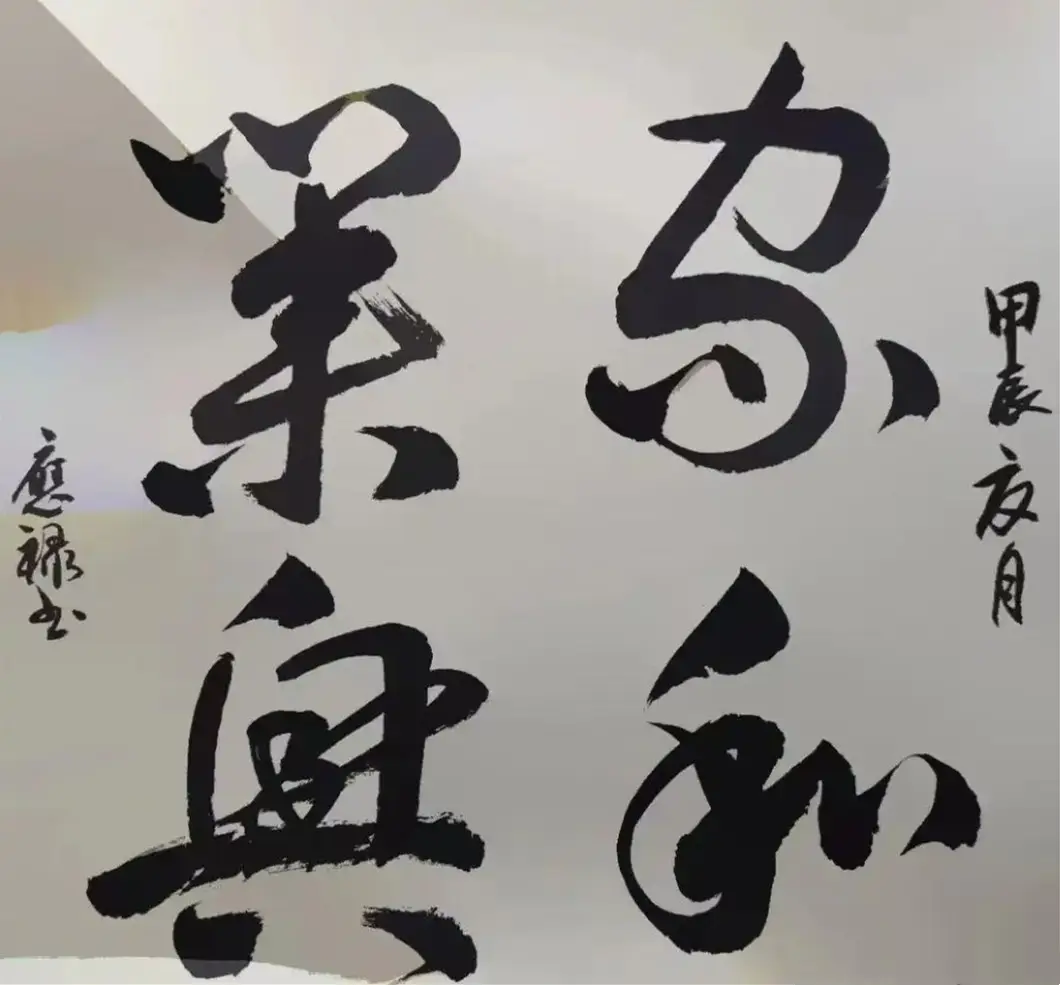 甲辰夏月
家和
業興
應祿书